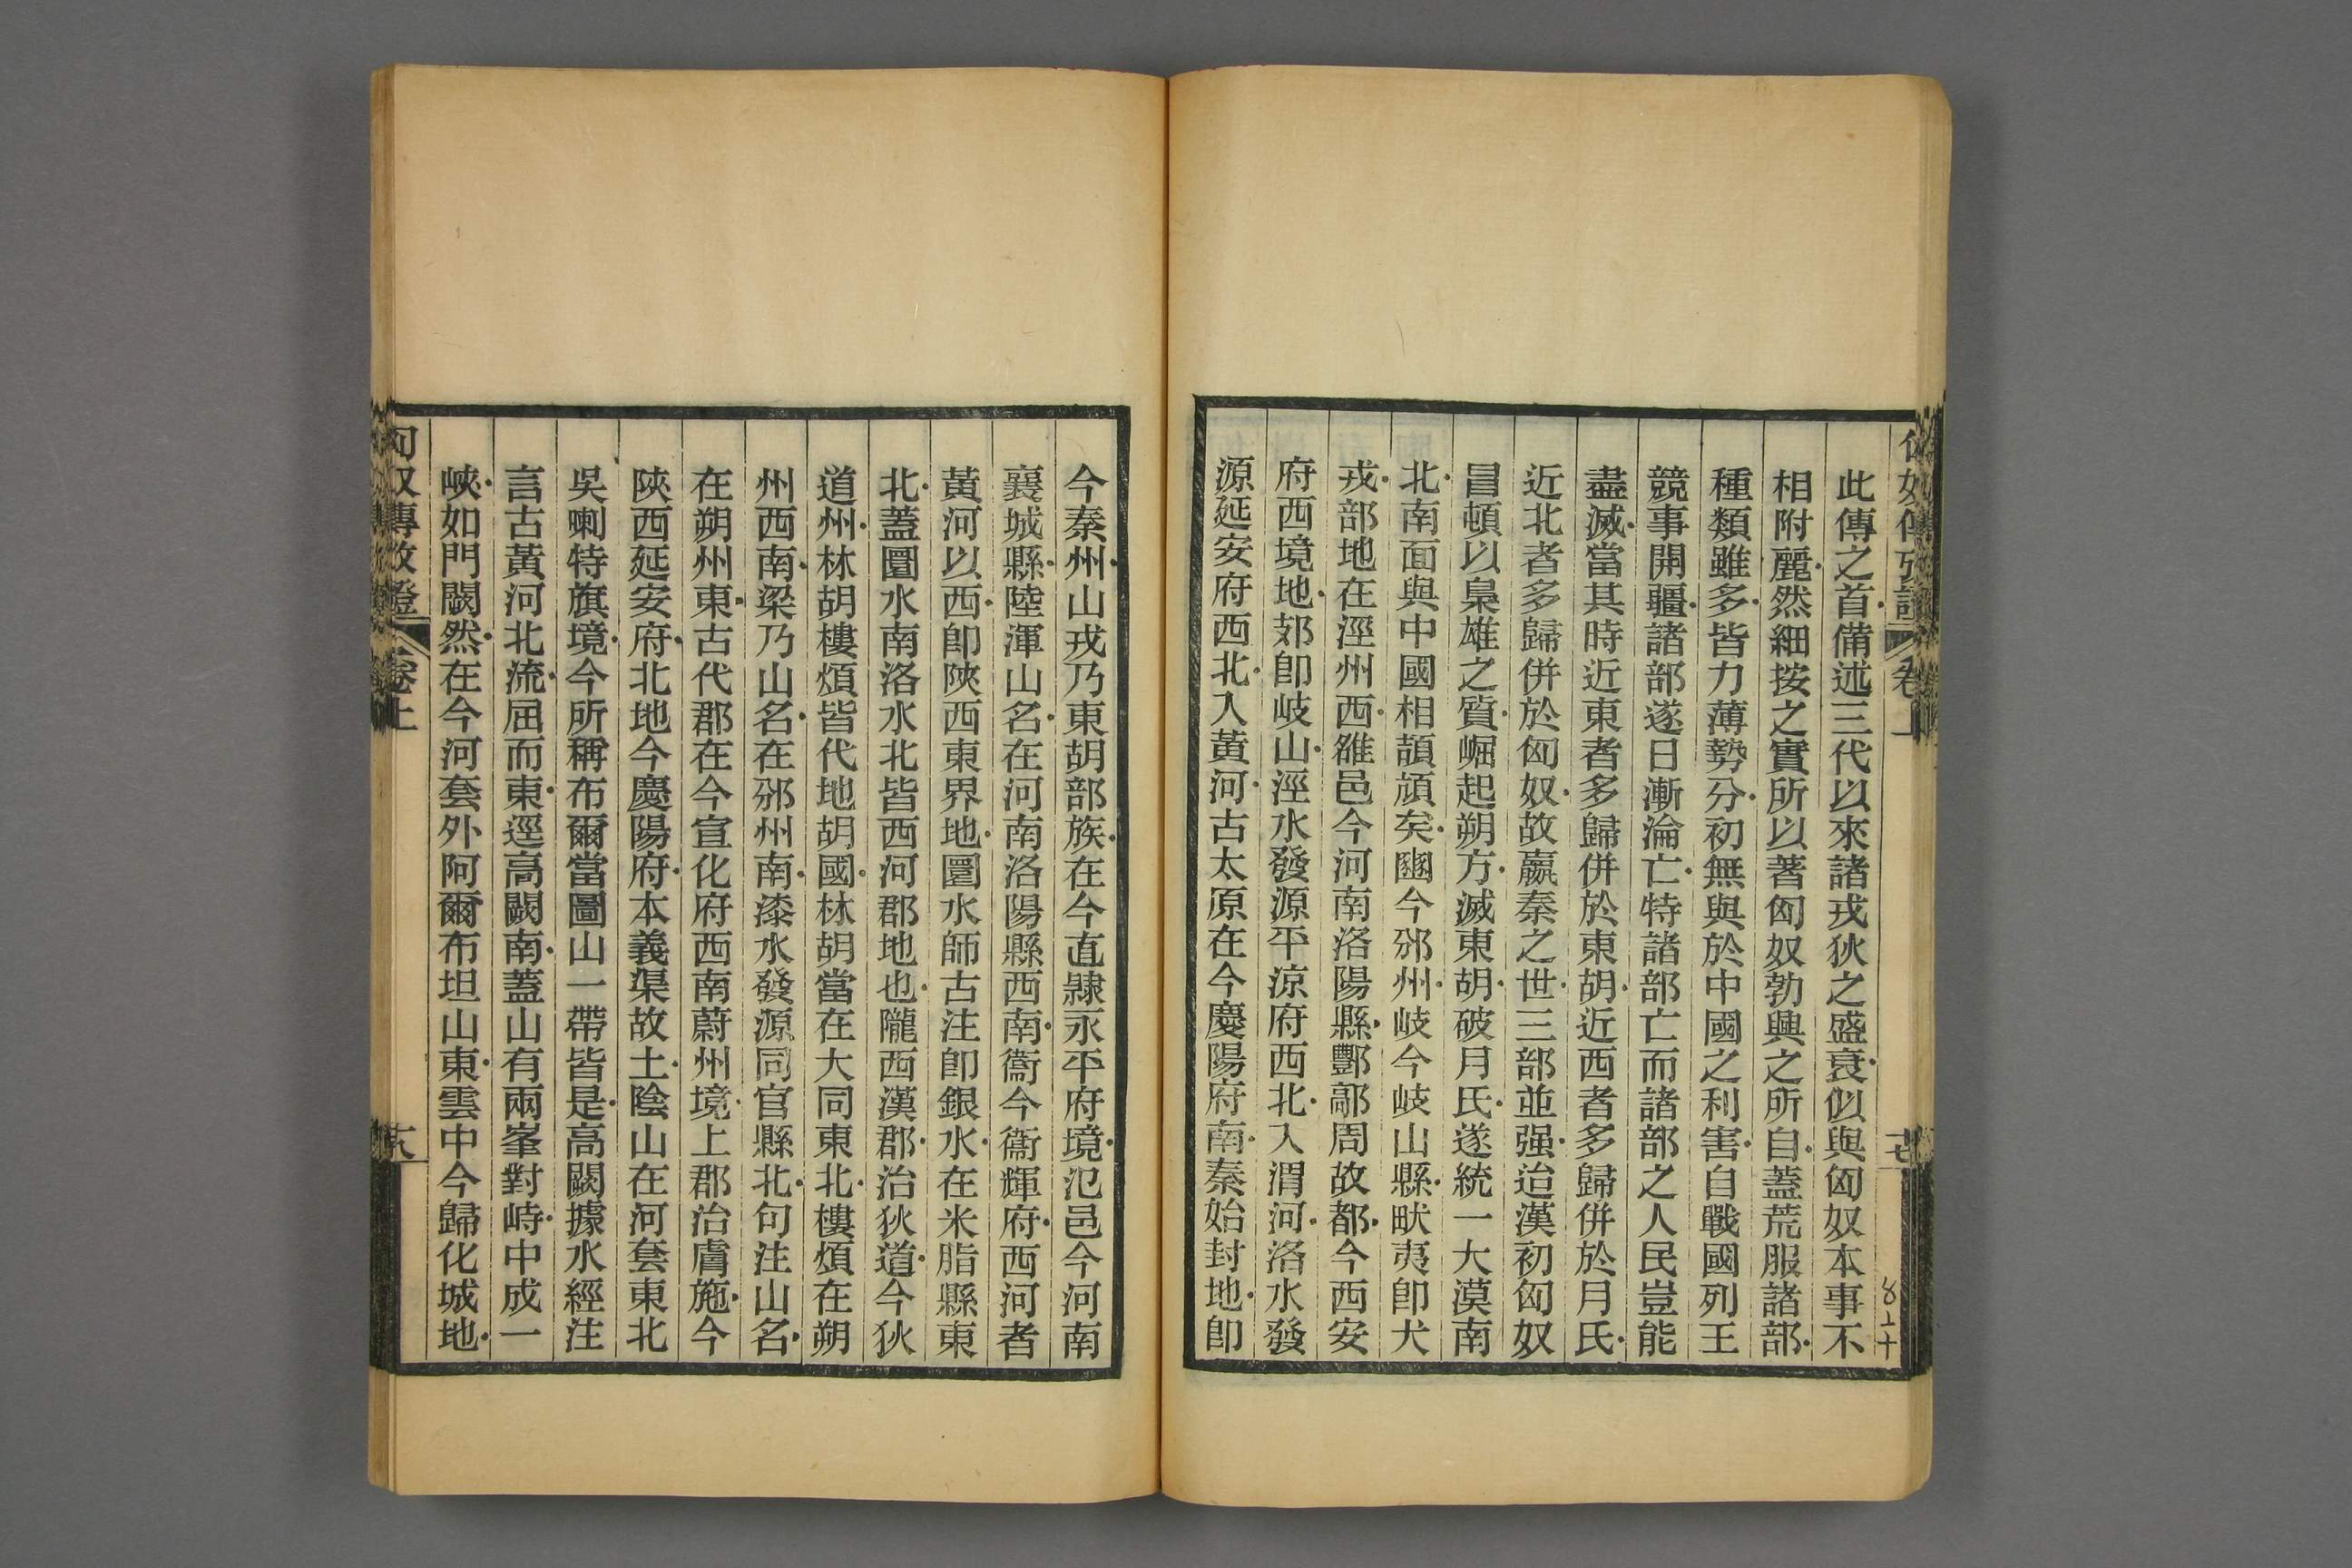 此傳之首備述三代以來諸戎狄之盛衰似與匈奴本事不
相附麗然細按之實所以著匈奴勃興之所自蓋荒服諸部
種類雖多皆力薄勢分初無與於中國之利害自戰國列王
競事開疆諸部遂日漸淪亡特諸部亡而諸部之人民豈能
盡滅當其時近東者多歸併於東胡近西者多歸併於月氏
近北者多歸併於匈奴故嬴秦之世三部並强迨漢初匈奴
冒頓以梟雄之質崛起朔方滅東胡破月氏遂統一大漠南
北南面與中國相頡頏矣豳今邠州岐今岐山縣畎夷卽犬
戎部地在涇州西雒邑今河南洛陽縣酆鄗周故都今西安
府西境地郊卽岐山涇水發源平涼府西北入渭河洛水發
源延安府西北入黃河古太原在今慶陽府南秦始封地卽
今秦州山戎乃東胡部族在今直隸永平府境氾邑今河南
襄城縣陸渾山名在河南洛陽縣西南衞今衞輝府西河者
黃河以西卽陝西東界地圁水師古注卽銀水在米脂縣東
北蓋圁水南洛水北皆西河郡地也隴西漢郡治狄道今狄
道州林胡樓煩皆代地胡國林胡當在大同東北樓煩在朔
州西南梁乃山名在邠州南漆水發源同官縣北句注山名
在朔州東古代郡在今宣化府西南蔚州境上郡治膚施今
陝西延安府北地今慶陽府本義渠故土陰山在河套東北
吳喇特旗境今所稱布爾當圖山一帶皆是高闕據水經注
言古黃河北流屈而東逕高闕南蓋山有兩峯對峙中成一
峽如門闕然在今河套外阿爾布坦山東雲中今歸化城地
匈奴傳攷證
卷上
十八